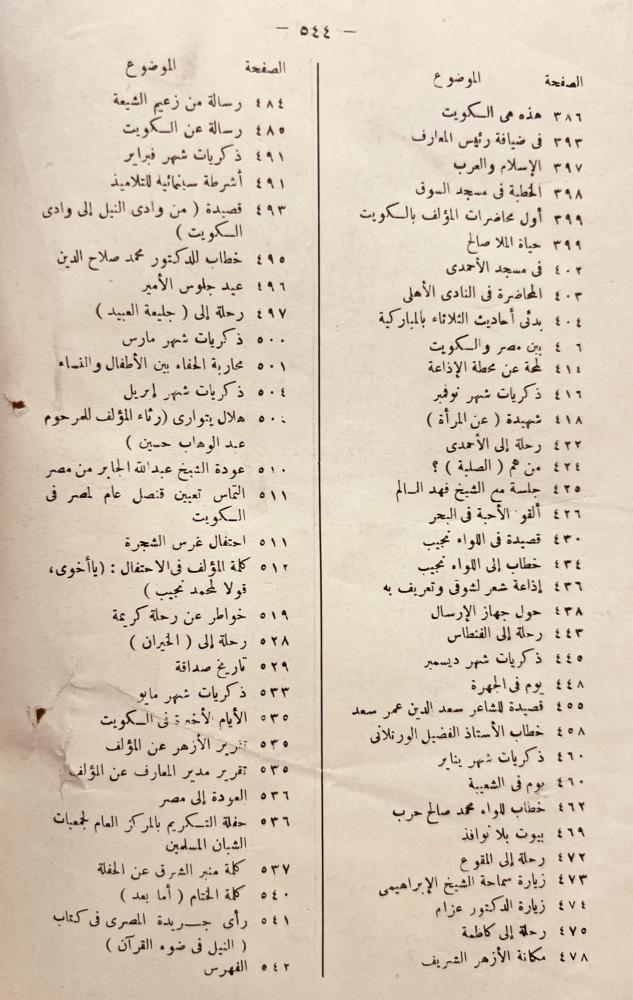 — ٥٤٤ —
الصفحة الموضوع
٣٨٦ هذه هى الكويت
٣٩٣ فى ضيافة رئيس المعارف
٣٩٧ الإسلام والعرب
٣٩٨ الخطبة فى مسجد السوق
٣٩٩ أول محاضرات المؤلف بالكويت
٣٩٩ حياة الملا صالح
٤٠٢ فى مسجد الأحمدى
٤٠٣ المحاضرة فى النادى الأهلى
٤٠٤ بدئى أحاديث الثلاثاء بالمباركية
٤ ٦ بين مصر والكويت
٤١٤ لمحة عن محطة الإذاعة
٤١٦ ذكريات شهر نوفمبر
٤١٨ شهيدة ( عن المرأة )
٤٢٢ رحلة إلى الأحمدى
٤٢٤ من هم ( الصلبة ) ؟
٤٢٥ جلسة مع الشيخ فهد السالم
٤٢٦ ألقو الأحبة فى البحر
٤٣٠ قصيدة فى اللواء نجيب
٤٣٤ خطاب إلى اللواء نجيب
٤٣٦ إذاعة شعر لشوقى وتعريف به
٤٣٨ حول جهاز الإرسال
٤٤٣ رحلة إلى الفنطاس
٤٤٥ ذكريات شهر ديسمبر
٤٤٨ يوم فى الجهرة
٤٥٥ قصيدة للشاعر سعد الدين عمر سعد
٤٥٨ خطاب الأستاذ الفضيل الورتلانى
٤٦٠ ذكريات شهر يناير
٤٦٠ يوم فى الشعيبة
٤٦٢ خطاب للواء محمد صالح حرب
٤٦٩ بيوت بلا نوافذ
٤٧٢ رحلة إلى المقوع
٤٧٣ زيارة سماحة الشيخ الإبراهيمى
٤٧٤ زيارة الدكتور عزام
٤٧٥ رحلة إلى كاظمة
٤٧٨ مكانة الأزهر الشريف
الصفحة الموضوع
٤٨٤ رسالة من زعيم الشيعة
٤٨٥ رسالة عن الكويت
٤٩١ ذكريات شهر فبراير
٤٩١ أشرطة سينمائيه للتلاميذ
٤٩٣ قصيدة ( من وادى النيل إلى وادى
الكويت )
٤٩٥ خطاب للدكتور محمد صلاح الدين
٤٩٦ عيد جلوس الأمير
٤٩٧ رحلة إلى ( جليعة العبيد )
٥٠٠ ذكريات شهر مارس
٥٠١ محاربة الحفاء بين الأطفال والنساء
٥٠٤ ذكريات شهر إبريل
٥٠ هلال يتوارى (رثاء المؤلف للمرحوم
عبد الوهاب حسين )
٥١٠ عودة الشيخ عبدالله الجابر من مصر
٥١١ التماس تعيين قنصل عام لمصر فى
الكويت
٥١١ احتفال غرس الشجرة
٥١٢ كلمة المؤلف فى الاحتفال : (ياأخوى،
قولا لمحمد نجيب )
٥١٩ خواطر عن رحلة كريمة
٥٢٨ رحلة إلى ( الخيران )
٥٢٩ تاريخ صداقة
٥٣٣ ذكريات شهر مايو
٥٣٥ الأيام الأخيرة فى الكويت
٥٣٥ تقرير الأزهر عن المؤلف
٥٣٥ تقرير مدير المعارف عن المؤلف
٥٣٦ العودة إلى مصر
٥٣٦ حفلة التكريم بالمركز العام لجمعيات
الشبان المسلمين
٥٣٧ كلمة منبر الشرق عن الحفلة
٥٤٠ كلمة الختام ( أما بعد )
٥٤١ رأى جريدة المصرى فى كتاب
( النيل فى ضوء القرآن )
٥٤٢ الفهرس